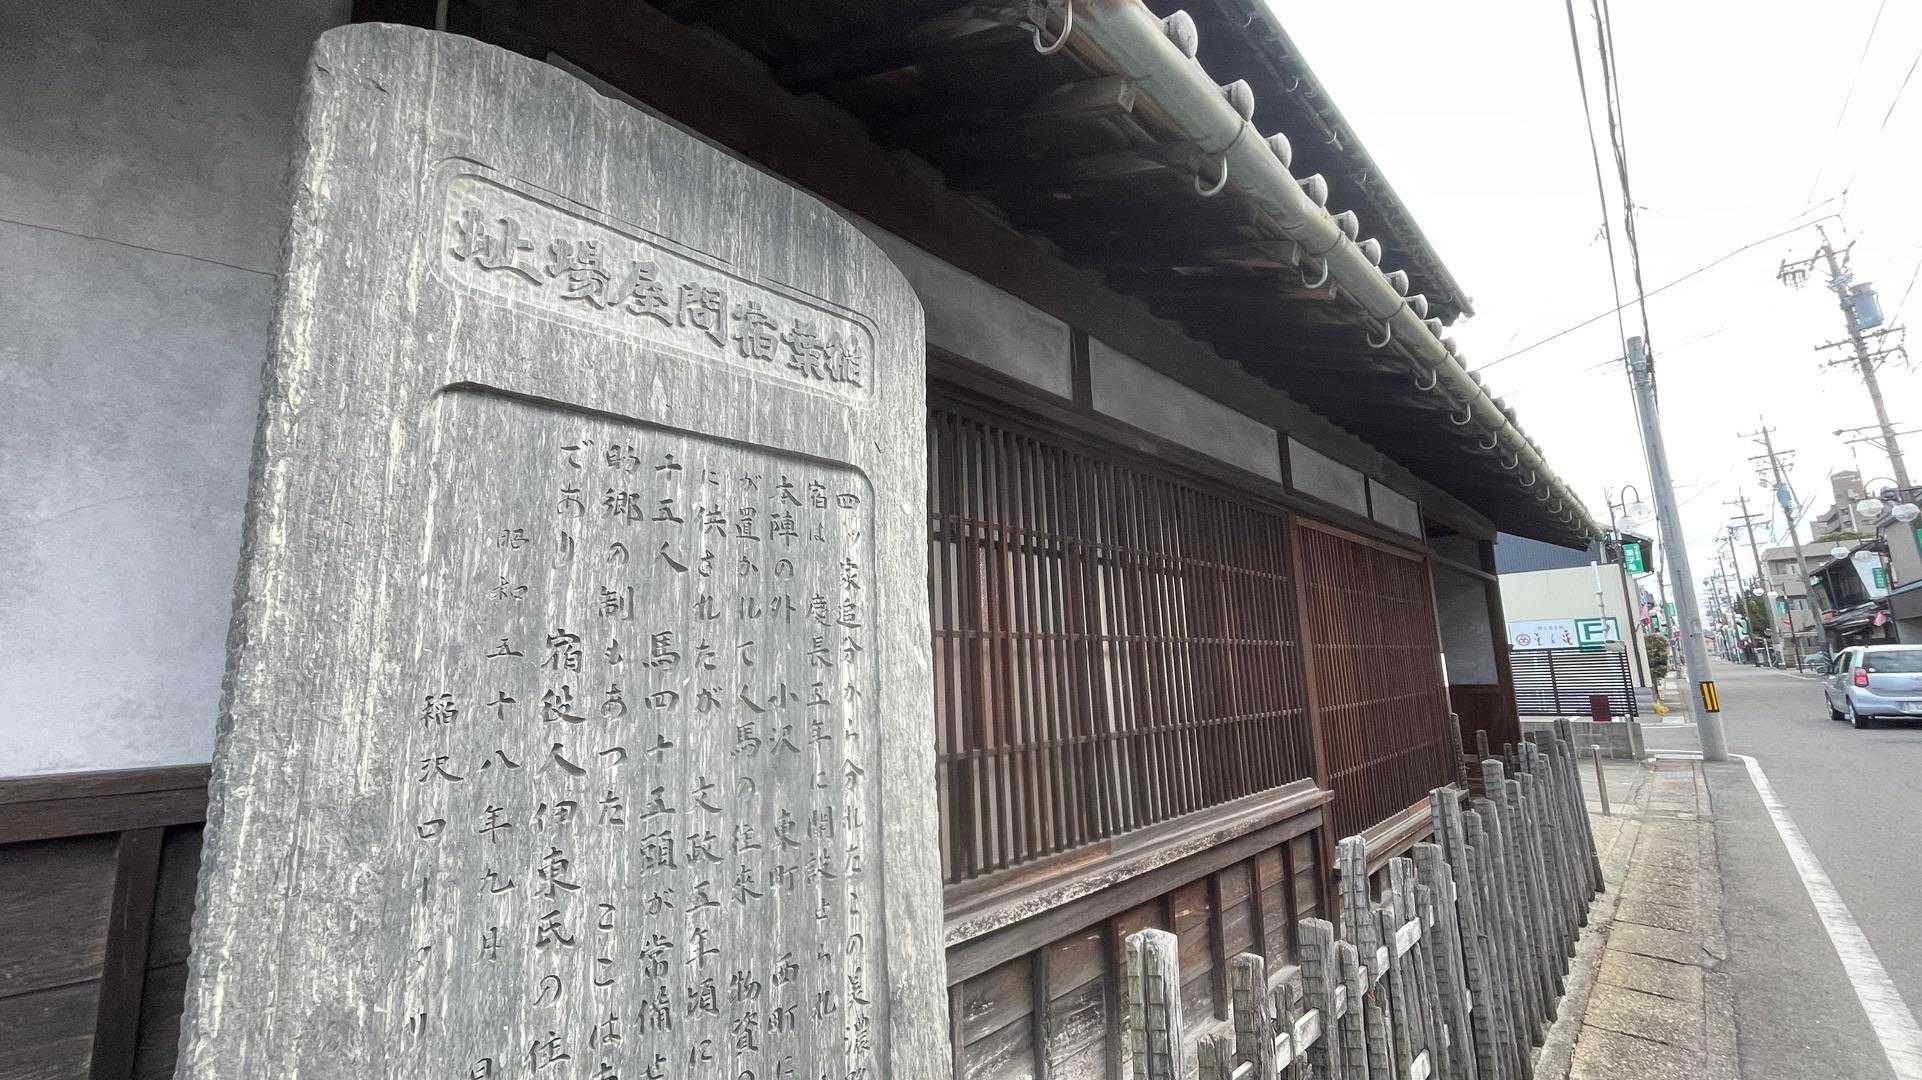 稲葉宿問屋場址
四ッ家追分から分れたこの美濃
宿は 慶長五年に開設せられ
本陣の外、小沢 東町 西町に
が置かれて人馬の往来 物資の
に供されたが 文政五年頃に
十五人 馬四十五頭が常備せ
助郷の制もあつた ここは
であり 宿役人伊東氏の住
昭和五十八年九月
稲沢ロータリ
P